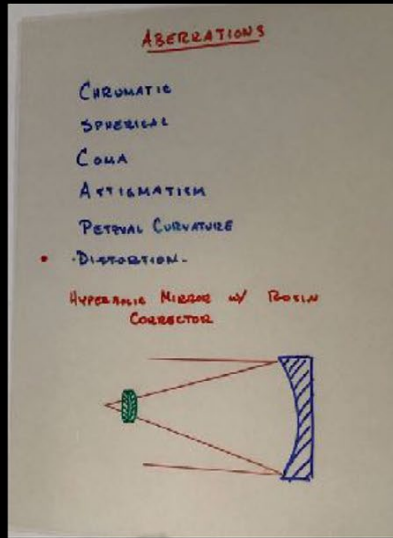 ABERRATIONS
CHROMATIC
SPHERICAL
COMA
ASTIGMATISM
PETZVAL CURVATURE
• -DISTORTION-
HYPERBOLIC MIRROR W/ ROSIN
CORRECTOR